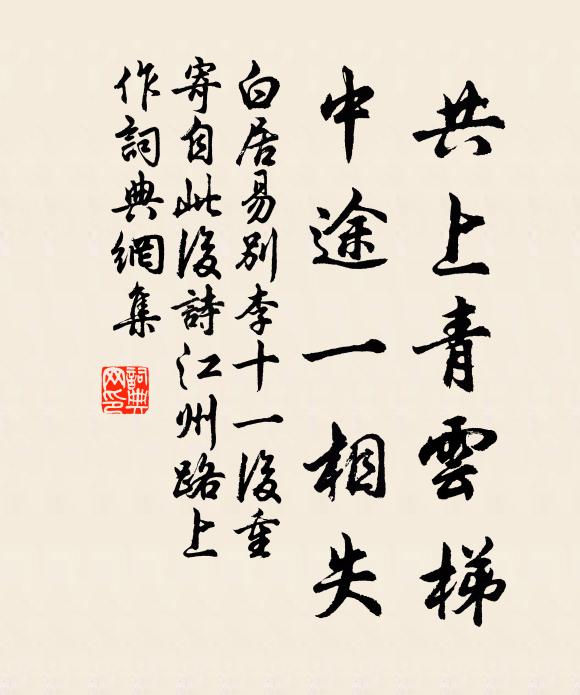 共上青雲梯
中途一相失
白居易別李十一後重
寄自此後詩江州路上
作詞典網集
詞典網印